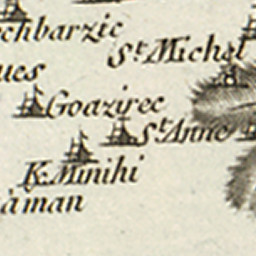 chbarzic
St. Michel
ues
Goazirec
St. Anne
K. Minihi
aman